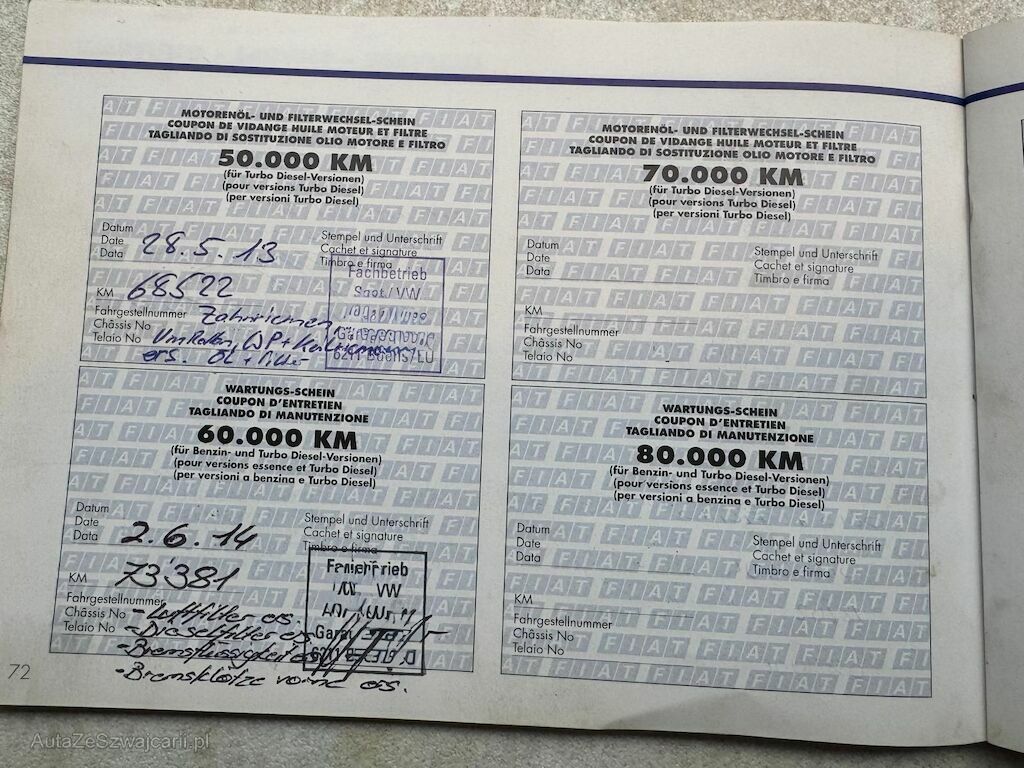 MOTORENÖL- UND FILTERWECHSEL-SCHEIN
COUPON DE VIDANGE HUILE MOTEUR ET FILTRE
TAGLIANDO DI SOSTITUZIONE OLIO MOTORE E FILTRO
50.000 KM
(für Turbo Diesel-Versionen)
(pour versions Turbo Diesel)
(per versioni Turbo Diesel)
Datum
Date
Data
28.5.13
Stempel und Unterschrift
Cachet et signature
Timbro e firma
KM
68522
Fahrgestellnummer
Châssis No
Telaio No
Zahnriemen,
Umrollen, WP + Keilriemen
ers. ÖL + Filter
Fachbetrieb
Seat/VW
WARTUNGS-SCHEIN
COUPON D'ENTRETIEN
TAGLIANDO DI MANUTENZIONE
60.000 KM
(für Benzin- und Turbo Diesel-Versionen)
(pour versions essence et Turbo Diesel)
(per versioni a benzina e Turbo Diesel)
Datum
Date
Data
2.6.14
Stempel und Unterschrift
Cachet et signature
Timbro e firma
KM
73'381
Fahrgestellnummer
Châssis No
Telaio No
- Luftfilter ers.
- Dieselfilter ers.
- Bremsflüssigkeit ers.
- Bremsklötze vorne ers.
VW
72
MOTORENÖL- UND FILTERWECHSEL-SCHEIN
COUPON DE VIDANGE HUILE MOTEUR ET FILTRE
TAGLIANDO DI SOSTITUZIONE OLIO MOTORE E FILTRO
70.000 KM
(für Turbo Diesel-Versionen)
(pour versions Turbo Diesel)
(per versioni Turbo Diesel)
Datum
Date
Data
Stempel und Unterschrift
Cachet et signature
Timbro e firma
KM
Fahrgestellnummer
Châssis No
Telaio No
WARTUNGS-SCHEIN
COUPON D'ENTRETIEN
TAGLIANDO DI MANUTENZIONE
80.000 KM
(für Benzin- und Turbo Diesel-Versionen)
(pour versions essence et Turbo Diesel)
(per versioni a benzina e Turbo Diesel)
Datum
Date
Data
Stempel und Unterschrift
Cachet et signature
Timbro e firma
KM
Fahrgestellnummer
Châssis No
Telaio No
AutaZeSzwajcarii.pl